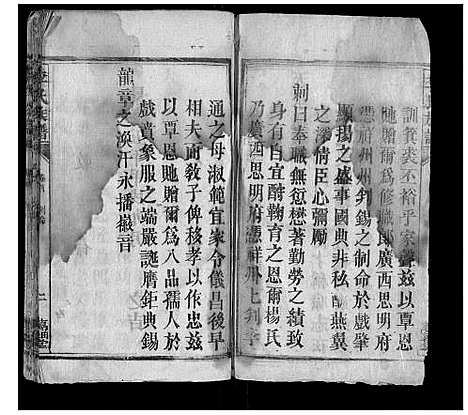 訓箕裘不裕乎家聲茲以覃恩
馳贈爾為修職郎廣西思明府
憑祥州州判錫之制命於戲肇
顯揚之盛事國典非私酒燕翼
之深情臣心彌勵
制曰奉職無愆懋著勤勞之績致
身有自宜酧鞠育之恩爾楊氏
乃廣西思明府憑祥州七判
通之母淑範宜家令儀昌後早
相夫而教子俾移孝以作忠茲
以覃恩馳贈爾為八品孺人於
戲賁象服之端嚴誕膺鉅典錫
龍章之渙汗永播徽音
氏族譜
二